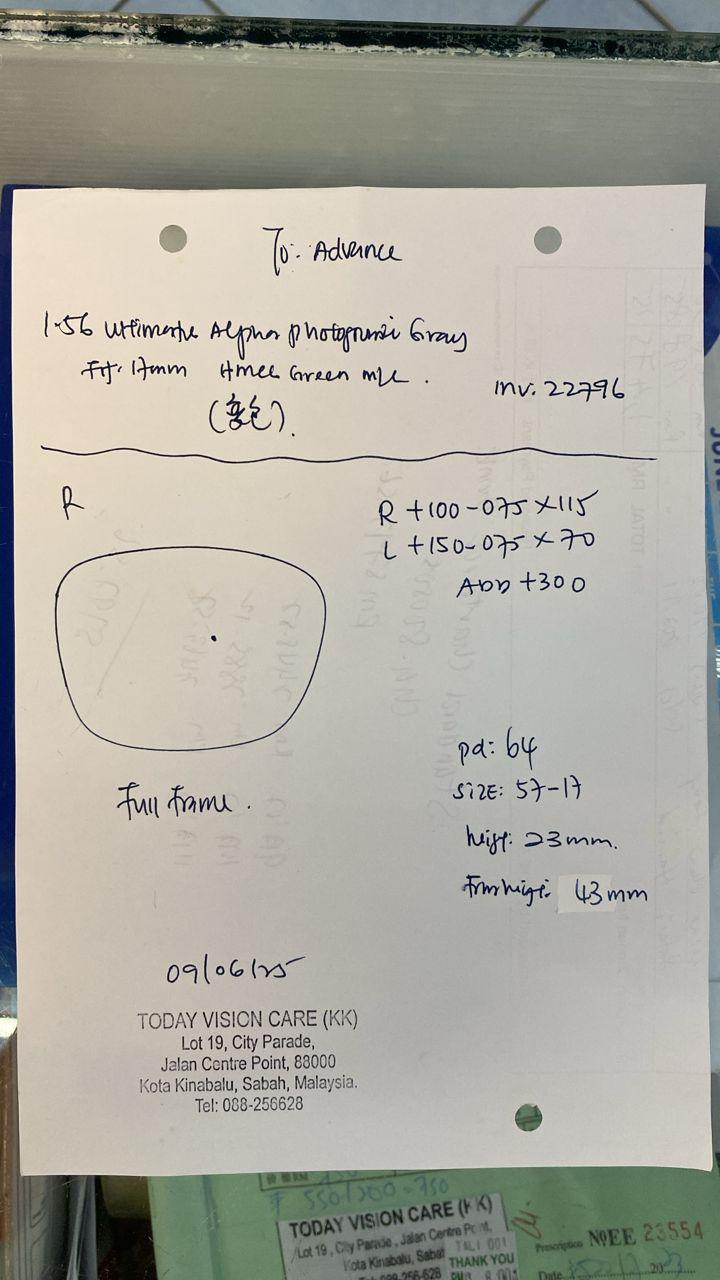 To: Advance
1.56 Ultimate Alpha photogrami Gray
FH: 17mm Hmcc Green m/c.
(变色).
inv. 22796
R
R +100-075 X115
L +150-075 X 70
ADD +300
Full Frame.
pd: 64
SIZE: 57-17
heigt: 23mm.
Frm heigt: 43mm
09/06/25
TODAY VISION CARE (KK)
Lot 19, City Parade,
Jalan Centre Point, 88000
Kota Kinabalu, Sabah, Malaysia.
Tel: 088-256628
550/200-750
TODAY VISION CARE (KK)
Lot 19, City Parade, Jalan Centre Point,
Kota Kinabalu, Sabah
088-256-628
TALI 001
THANK YOU
Prescription NOEE 23554
Date